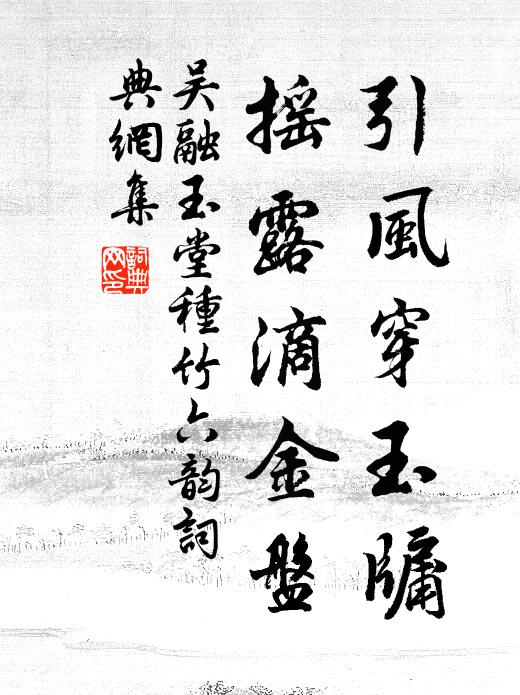 引風穿玉牖
搖露滴金盤
吴融玉堂種竹六韵詞
典網集
詞典
网印